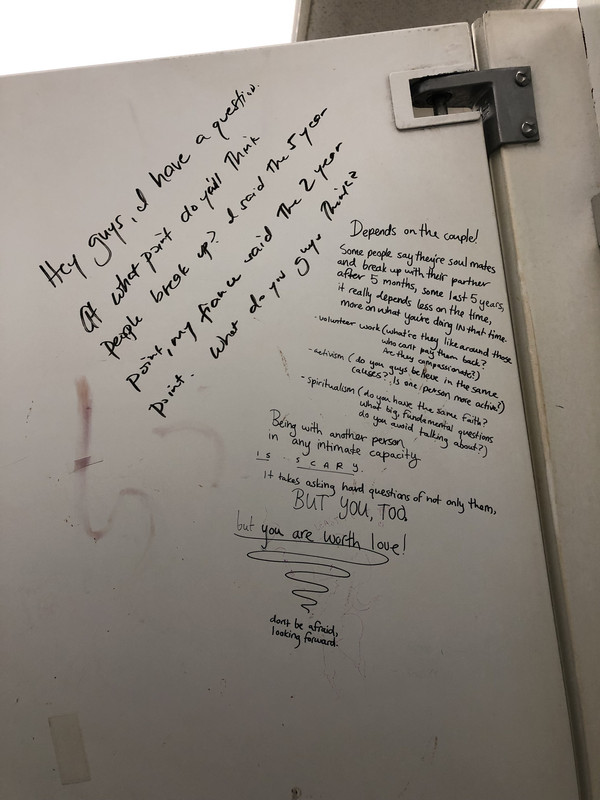 Hey guys, I have a question.
At what point do ya'll think
people break up? I said the 5 year
point, my fiance said the 2 year
point. What do you guys think?
Depends on the couple!
Some people say they're soul mates
and break up with their partner
after 5 months, some last 5 years,
it really depends less on the time,
more on what you're doing IN that time.
- volunteer work (what're they like around those
who cant pay them back?
Are they compassionate?)
- activism (do you guys believe in the same
causes? Is one person more active?)
- spiritualism (do you have the same faith?
what big, fundamental questions
do you avoid talking about?)
Being with another person
in any intimate capacity
is SCARY.
It takes asking hard questions of not only them,
BUT YOU, TOO.
but you are worth love!
don't be afraid,
looking forward.